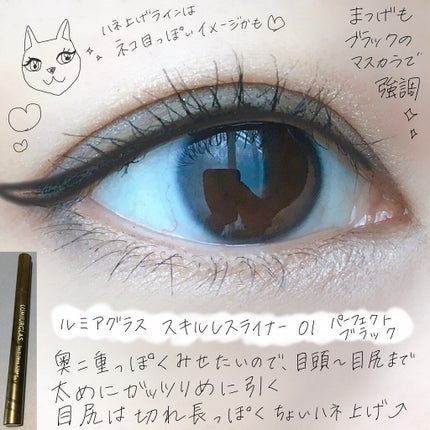 ハネ上げラインは
ネコ目っぽいイメージかも♡
まつげも
ブラックの
マスカラで
強調
LUMIURGLAS
ルミアグラス スキルレスライナー 01 パーフェクト
ブラック
奥二重っぽくみせたいので、目頭〜目尻まで
太めにガッツリめに引く
目尻は切れ長っぽくちょいハネ上げ⤴